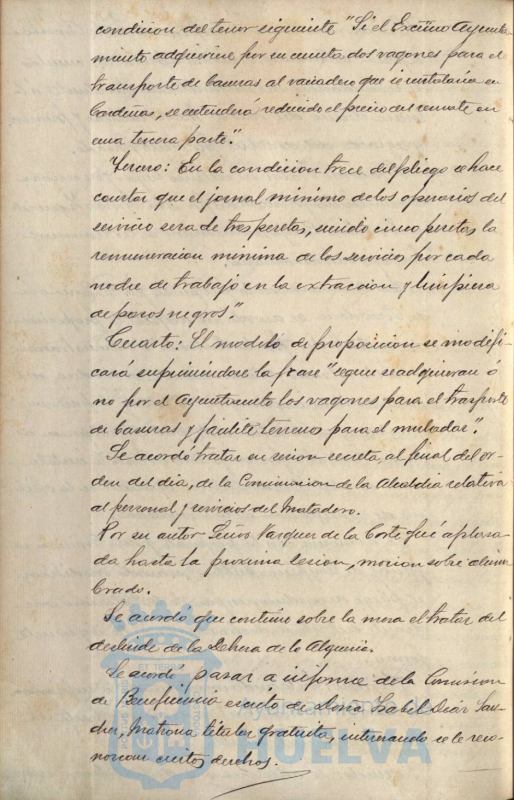 condicion del tenor siguiente "Si el Excmo Ayunta-
miento adquiriese por su cuenta dos vagones para el
transporte de basuras al vaciadero que se instalaria en
Cardeñas, se entenderá reducido el precio del remate en
una tercera parte".
Tercero: En la condicion trece del pliego se hace
constar que el jornal minimo de los operarios del
servicio sera de tres pesetas, siendo cinco pesetas la
remuneracion minima de los servicios por cada
noche de trabajo en la extraccion y limpieza
de pozos negros".
Cuarto: El modelo de proposicion se modifi-
cará suprimiendose la frase "segun se adquieran ó
no por el Ayuntamiento los vagones para el trasporte
de basuras y facilite terreno para el muladar".
Se acordó tratar en sesion secreta, al final del or-
den del dia, de la Comunicacion de la Alcaldia relativa
al personal y servicios del Matadero.
Por su autor Señor Vazquez de la Corte fué aplaza-
da hasta la proxima sesion, mocion sobre alum-
brado.
Se acordó que continue sobre la mesa el tratar del
deslinde de la Dehesa de la Alqueria.
Se acordó pasar a informe de la Comision
de Beneficencia escrito de Doña Isabel Diaz San-
chez, Matrona titular gratuita, interesando se le reco-
nozcan ciertos derechos.
HUELVA